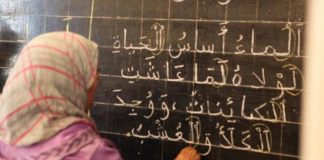 الْمَاءُ أَسَاسُ الْحَيَاةِ
لَوْلَاهُ لَمَا عَاشَتِ
الْكَائِنَاتُ، وَوُجِدَ
الْكَلَأُ وَالْعُشْبُ